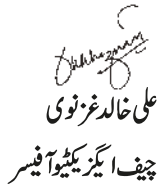 علی خالد غزنوی
چیف ایگزیکٹیو آفیسر